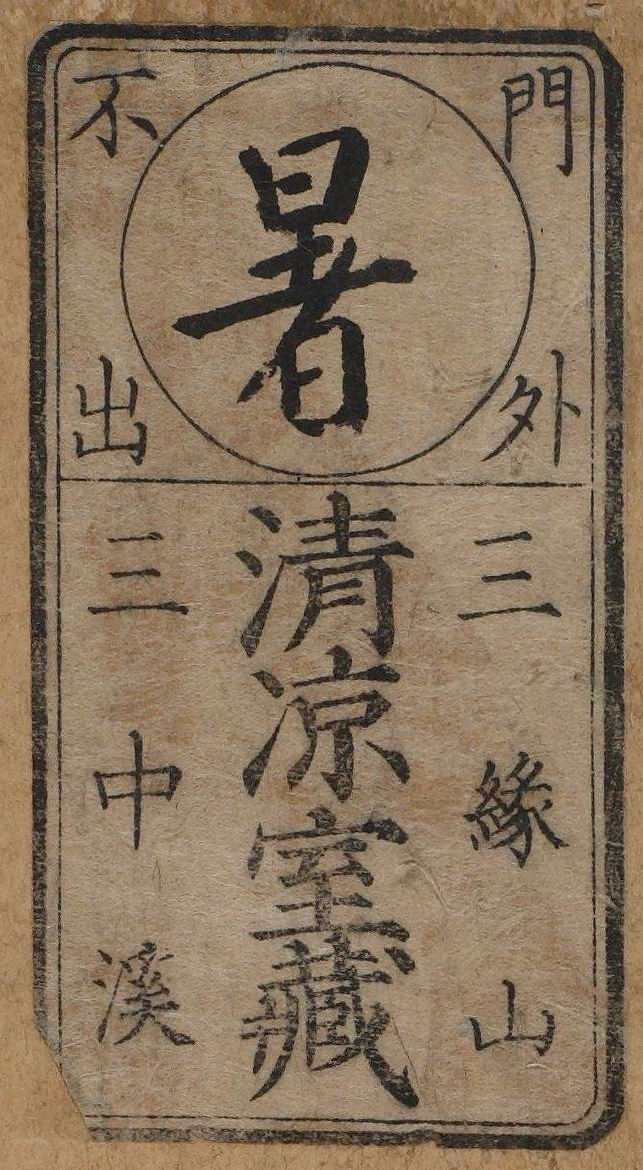 門外
不出
暑
三緣山
清凉室藏
三中溪